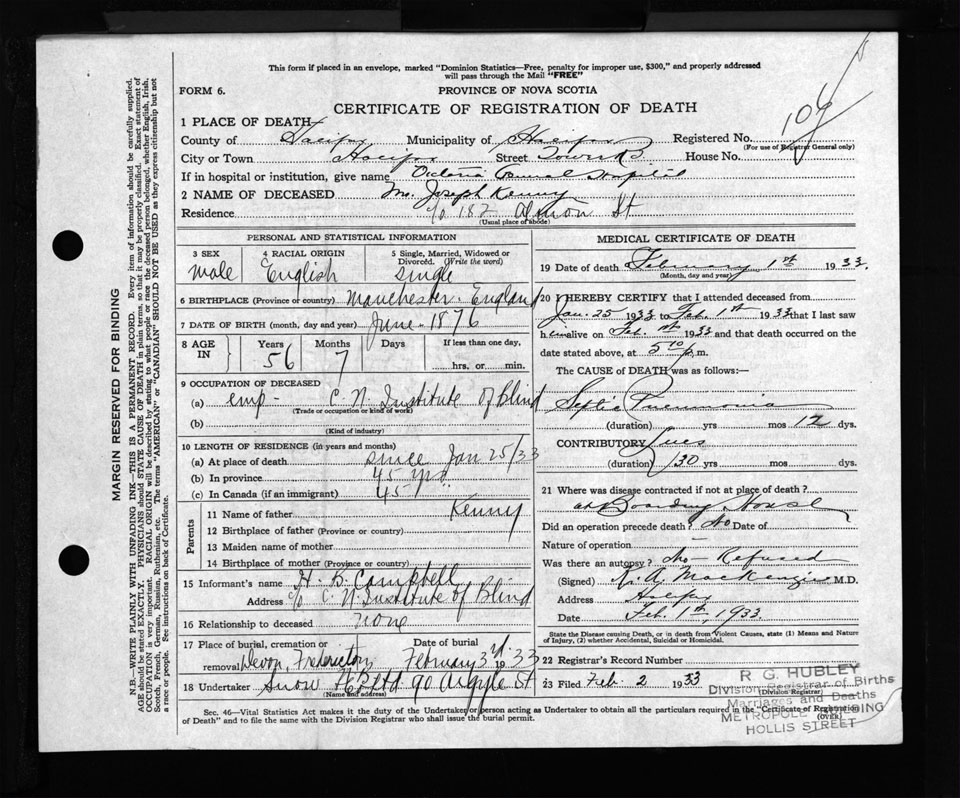 This form if placed in an envelope, marked "Dominion Statistics—Free, penalty for improper use, $300," and properly addressed
will pass through the Mail "FREE"
FORM 6.
PROVINCE OF NOVA SCOTIA
CERTIFICATE OF REGISTRATION OF DEATH
1 PLACE OF DEATH
County of Halifax Municipality of Halifax Registered No.
(For use of Registrar General only)
City or Town Halifax Street House No.
If in hospital or institution, give name Victoria General Hospital
2 NAME OF DECEASED Joseph Kenny
Residence c/o 182 Almon St
(Usual place of abode)
PERSONAL AND STATISTICAL INFORMATION
3 SEX
male
4 RACIAL ORIGIN
English
5 Single, Married, Widowed or Divorced. (Write the word)
single
6 BIRTHPLACE (Province or country) Manchester - England
7 DATE OF BIRTH (month, day and year) June - 1876
8 AGE IN
Years Months Days If less than one day,
56 7 hrs. or min.
9 OCCUPATION OF DECEASED
(a) emp - C. N. Institute of Blind
(Trade or occupation or kind of work)
(b)
(Kind of industry)
10 LENGTH OF RESIDENCE (in years and months)
(a) At place of death since Jan 25/33
(b) In province 45 yrs.
(c) In Canada (if an immigrant) 45
Parents
11 Name of father Kenny
12 Birthplace of father (Province or country)
13 Maiden name of mother
14 Birthplace of mother (Province or country)
15 Informant's name H. B. Campbell
Address c/o C. N. Institute of Blind
16 Relationship to deceased none
17 Place of burial, cremation or removal Devon, Fredericton
Date of burial February 3rd 1933
18 Undertaker Snow & Co Ltd 90 Argyle St
(Name and address)
MEDICAL CERTIFICATE OF DEATH
19 Date of death February 1st 1933.
(Month, day and year)
20 I HEREBY CERTIFY that I attended deceased from
Jan. 25 1933 to Feb. 1st 1933 that I last saw
him alive on Feb. 1st 1933 and that death occurred on
date stated above, at 5 10 p.m.
The CAUSE of DEATH was as follows:—
Septic Pneumonia
(duration) yrs mos 12 dys.
CONTRIBUTORY Lues
(duration) 30 yrs mos dys.
21 Where was disease contracted if not at place of death?
at Boarding House
Did an operation precede death? No Date of
Nature of operation —
Was there an autopsy? No - Refused
(Signed) A. MacKenzie M.D.
Address Halifax
Date Feb. 1st, 1933.
State the Disease causing Death, or in death from Violent Causes, state (1) Means and Nature of Injury, (2) whether Accidental, Suicidal or Homicidal.
22 Registrar's Record Number
23 Filed Feb 2 1933
(Division Registrar)
R G. HUBLEY
Division Registrar of Births
Marriages and Deaths
METROPOLE BUILDING
HOLLIS STREET
Sec. 46—Vital Statistics Act makes it the duty of the Undertaker or person acting as Undertaker to obtain all the particulars required in the "Certificate of Registration
of Death" and to file the same with the Division Registrar who shall issue the burial permit.
(OVER)
MARGIN RESERVED FOR BINDING
N.B.—WRITE PLAINLY WITH UNFADING INK—THIS IS A PERMANENT RECORD. Every item of information should be carefully supplied.
AGE should be stated EXACTLY. PHYSICIANS should STATE CAUSE OF DEATH in plain terms, so that it may be properly classified. Exact statement of
OCCUPATION is very important. RACIAL ORIGIN will be described by stating to what people or race the deceased person belonged, whether English, Irish,
Scotch, French, German, Russian, Ruthenian, etc. The terms "AMERICAN" or "CANADIAN" SHOULD NOT BE USED as they express citizenship but not
a race or people. See instructions on back of Certificate.